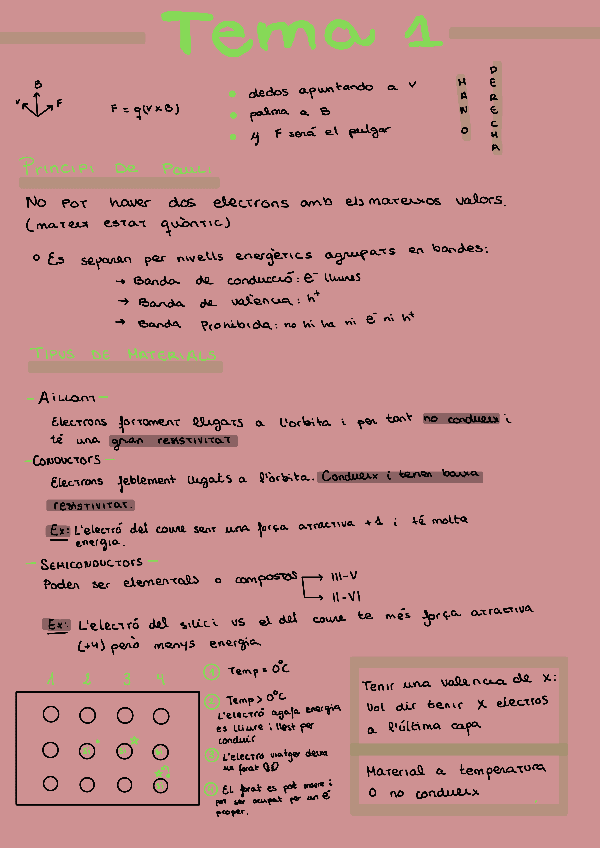 Tema 1
B
V F
F = q(V x B)
dedos apuntando a V
palma a B
y F será el pulgar
MANO
DERECHA
Principi de Pauli
No pot haver dos electrons amb els mateixos valors.
(mateix estat quàntic)
Es separen per nivells energètics agrupats en bandes:
→ Banda de conducció: e⁻ lliures
→ Banda de valència: h⁺
→ Banda Prohibida: no hi ha ni e⁻ ni h⁺
Tipus de materials
- Aïllant -
Electrons fortament lligats a l'orbita i per tant no condueix i
té una gran resistivitat
- Conductors
Electrons feblement lligats a l'òrbita. Condueix i tenen baixa
resistivitat.
Ex: L'electró del coure sent una força atractiva +1 i té molta
energia.
- Semiconductors -
Poden ser elementals o compostos → III-V
→ II-VI
Ex: L'electró del silici vs el del coure te més força atractiva
(+4) però menys energia
1 2 3 4
1 Temp = 0°C
2 Temp > 0°C
L'electró agafa energia
es lliure i llest per
conduir
3 L'electró viatger deixa
un forat
4 El forat es pot moure i
pot ser ocupat per un e⁻
proper.
Tenir una valencia de x:
Vol dir tenir x electros
a l'última capa
Material a temperatura
0 no condueix